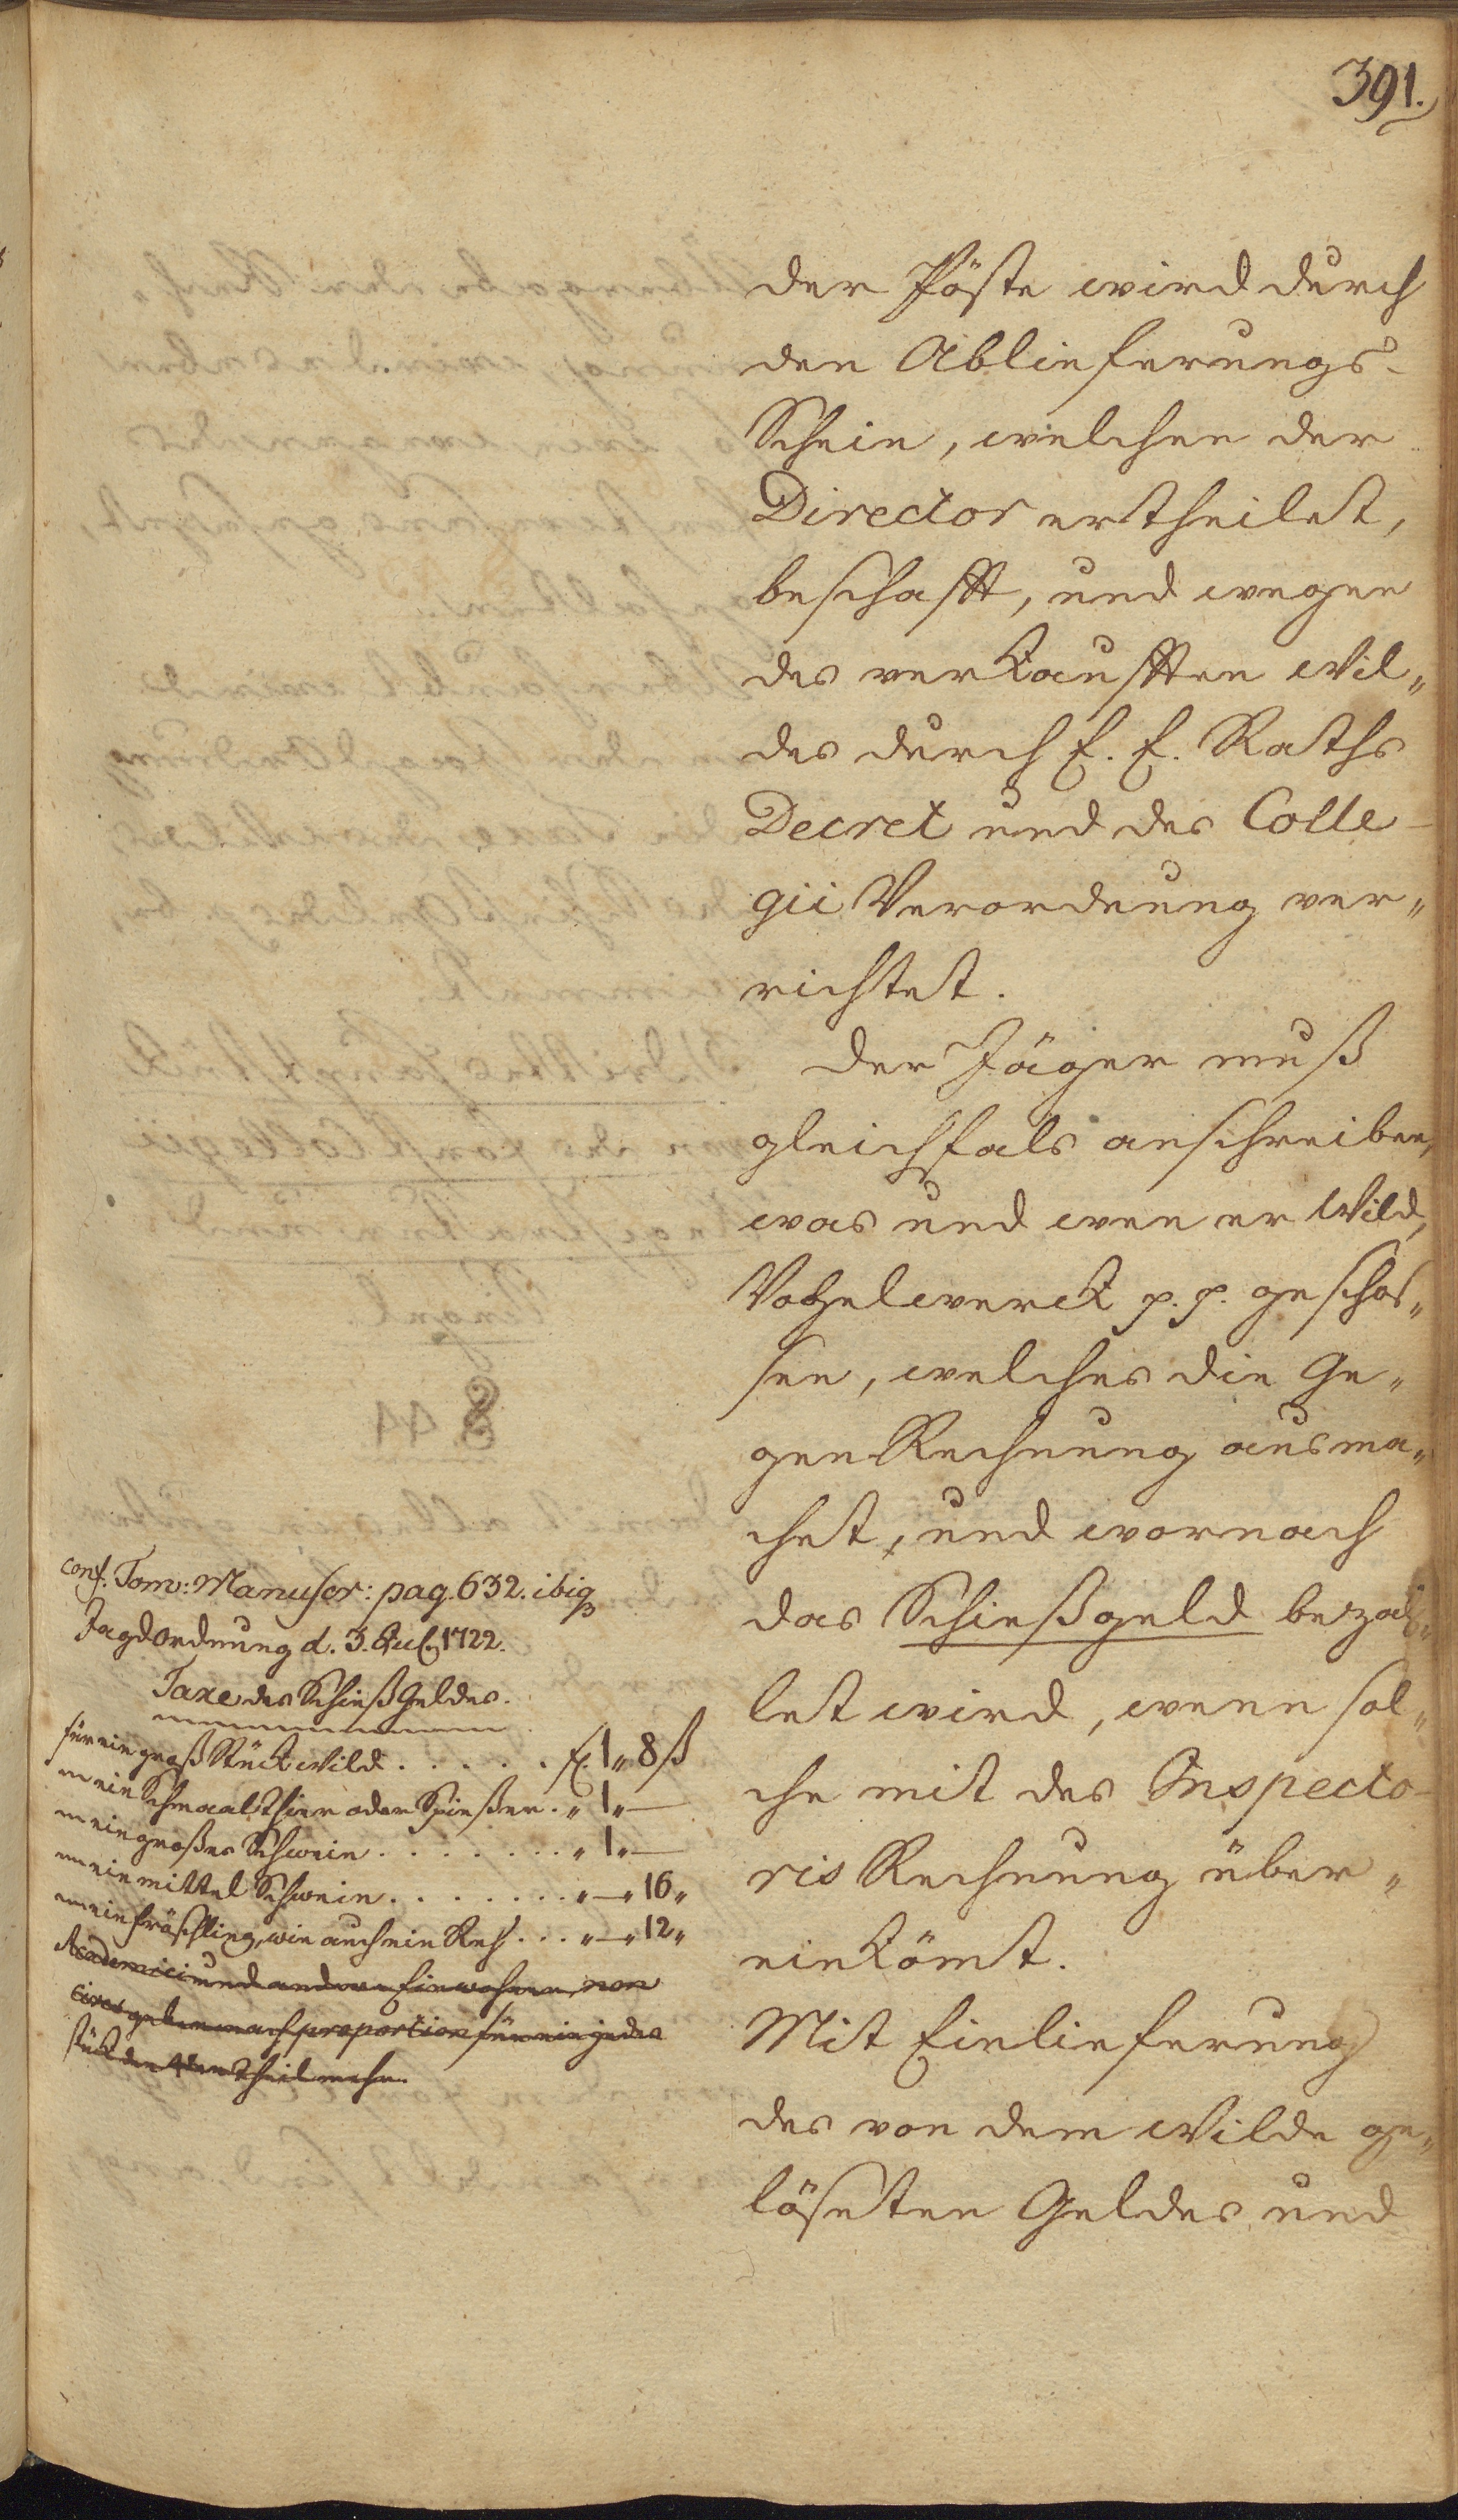 391.
der Pöste wird durch
den Ablieferungs-
Schein, welchen der
Director ertheilet,
beschafft, und wegen
des verkaufften Wil„
des durch E. E. Raths
Decret und des Colle-
gii Verordnung ver„
richtet.
Der Jäger muß
gleichfals anschreiben,
was und wen er Wild,
Vogelwerck p. p. geschos„
sen, welches die Ge„
genRechnung ausma„
chet, und wornach
das Schießgeld bezah„
let wird, wenn sol„
che mit des Inspecto-
ris Rechnung über„
einkömt.
Mit Einlieferung
des von dem Wilde ge„
löseten Geldes und
conf. Tom: Manuscr: pag. 632. ibiq
Jagdordnung d. 3. Jul. 1722.
Taxe des Schieß Geldes.
für ein groß Stück Wild . . . . . . 1„ 8 ß
„ ein Schmaalthier oder Spießer . „ 1„ —
„ ein großes Schwein . . . . . . . „ 1„ —
„ ein mittel Schwein . . . . . . . „ — „ 16„
„ ein Fröschling, wie auch ein Reh . . . „ — „ 12„
Academici und andere Einwohner, non
cives geben nach proportion für ein jedes
stück den 4ten Theil mehr.